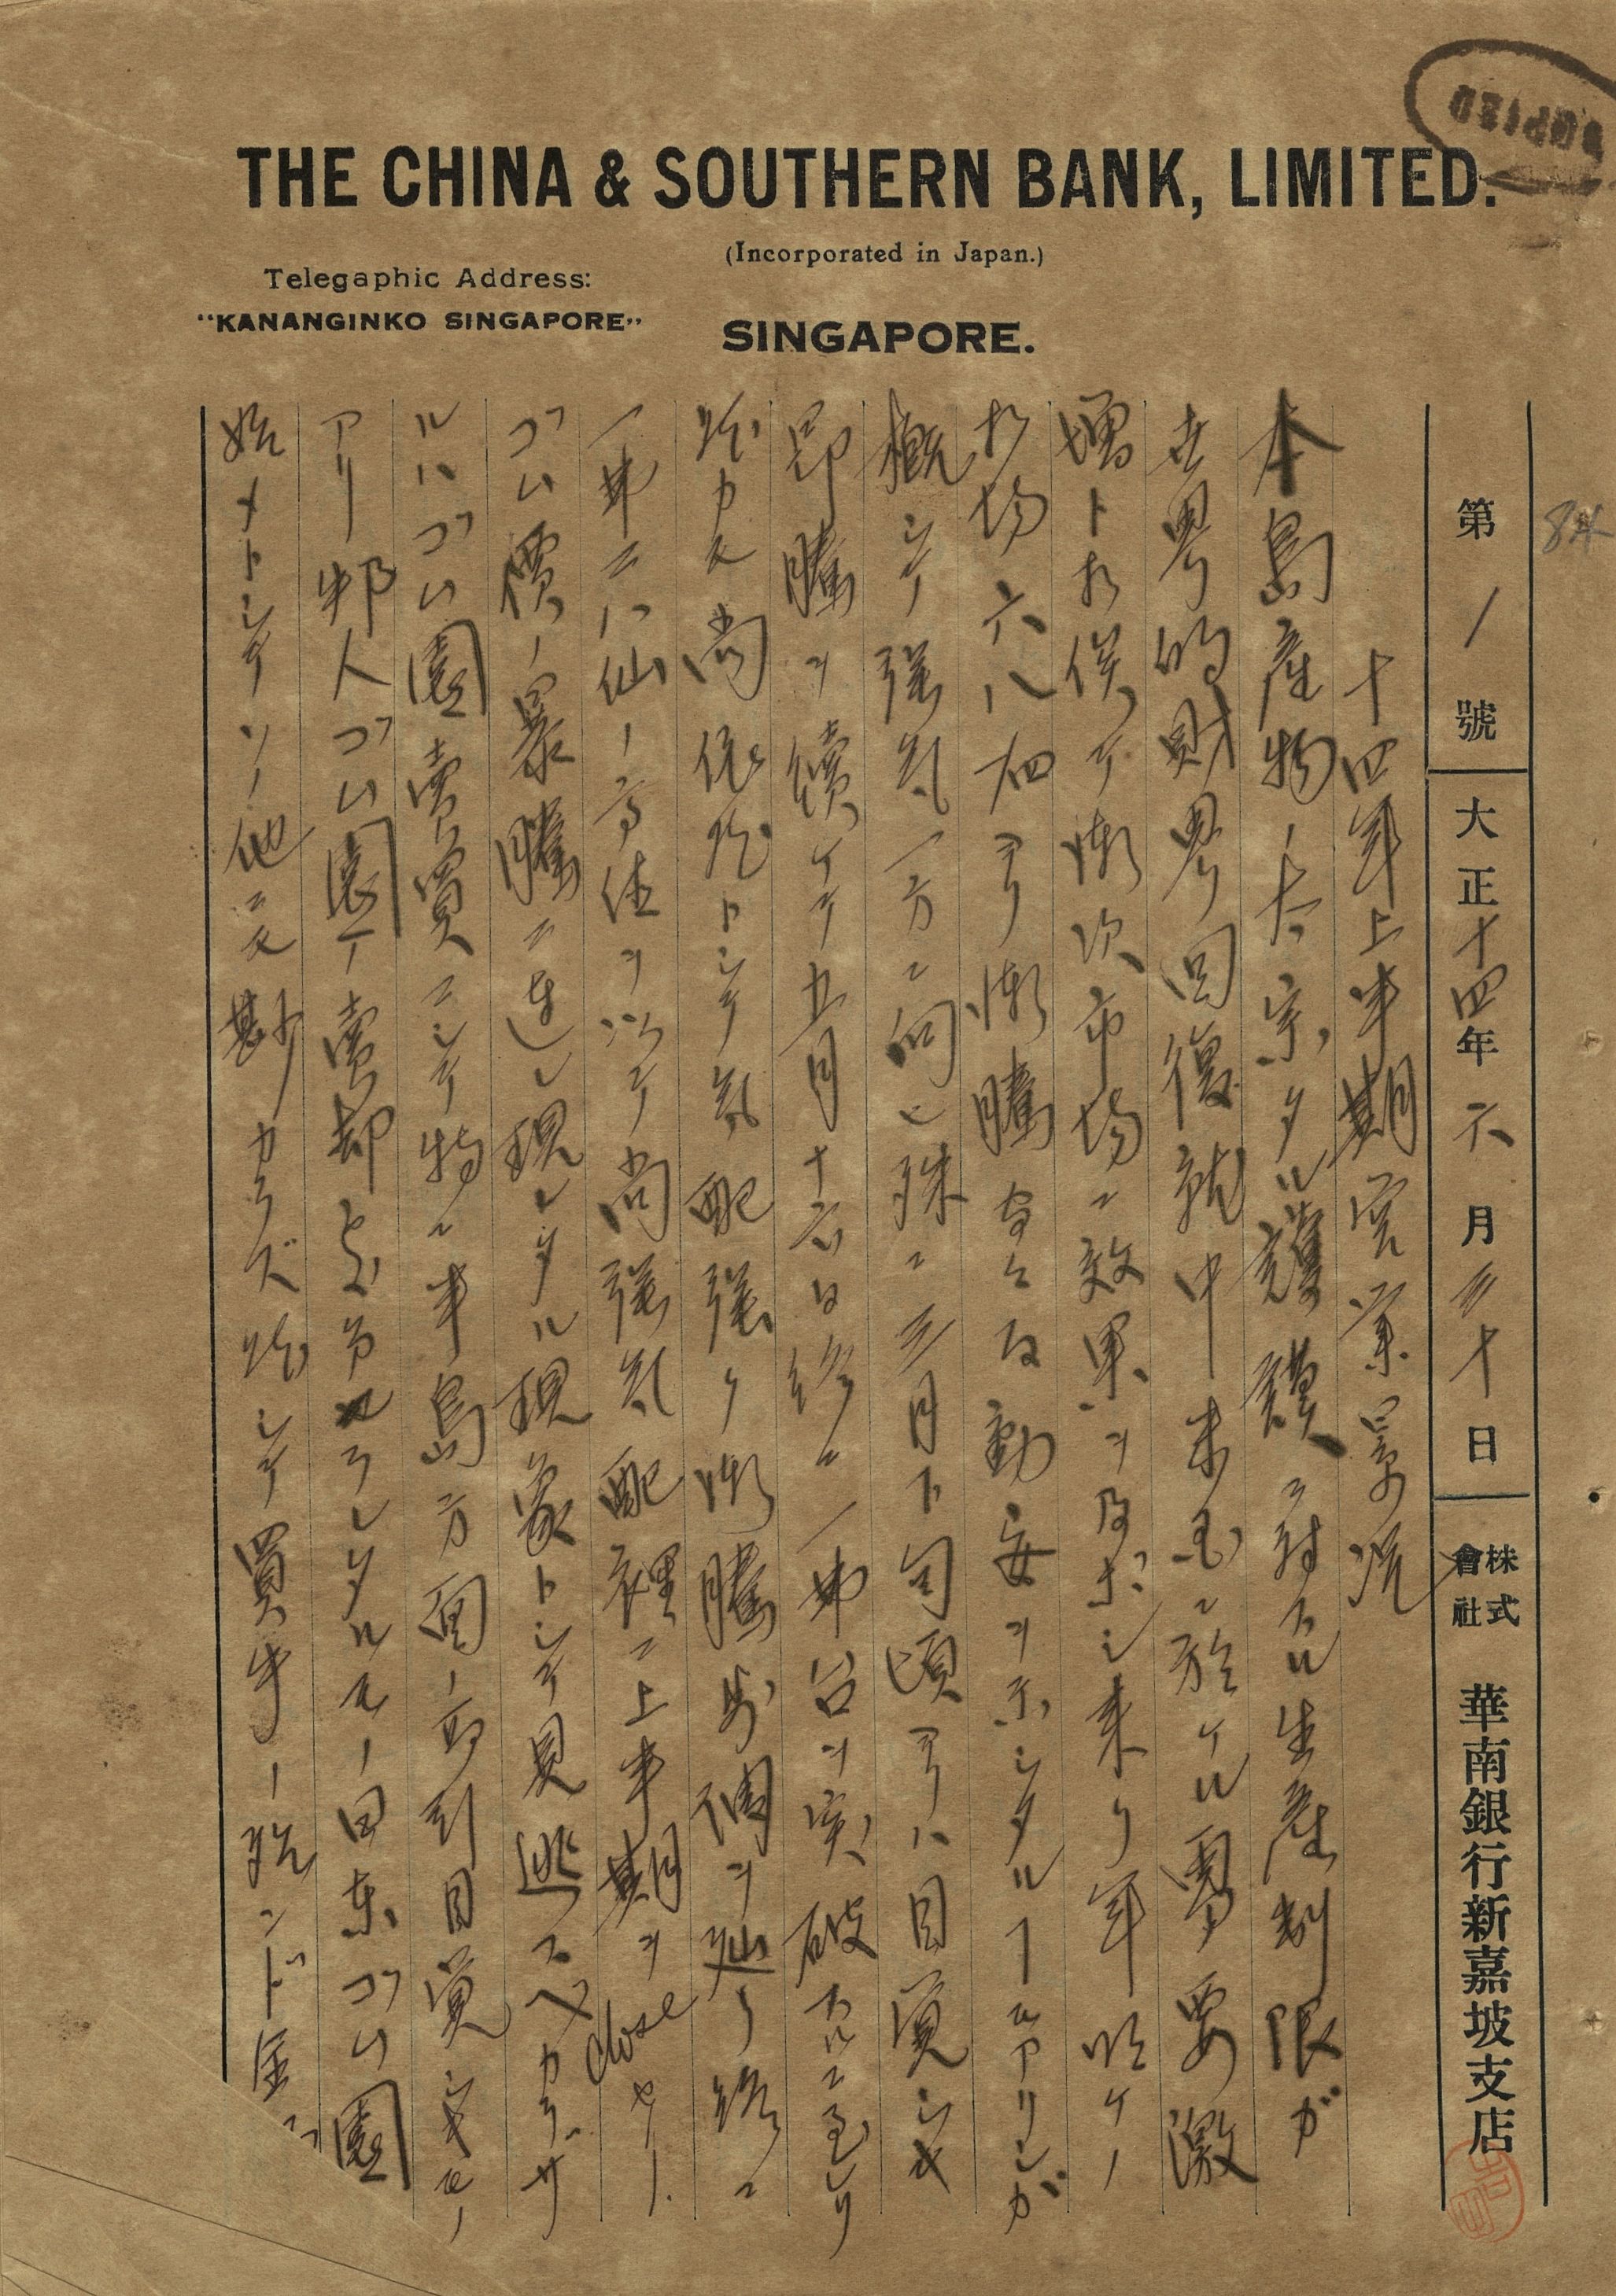 COPIED
THE CHINA & SOUTHERN BANK, LIMITED.
(Incorporated in Japan.)
Telegaphic Address:
"KANANGINKO SINGAPORE"
SINGAPORE.
84
第1號 大正十四年六月三十日 株式會社 華南銀行新嘉坡支店
十四年上半期営業景況
本島産物ノ大宗タル護謨ニ対スル生産制限ガ
世界的財界回復就中米国ニ於ケル需要激
増ト相俟テ漸次市場ニ效果ヲ及ボシ来リ年明ケノ
相場六八仙ヨリ漸騰 動揺ヲ示シタルコトモアリシガ
概シテ強気一方ニ向ヒ殊ニ三月下旬頃ヨリハ目覚シキ
昂騰ヲ続ケテ五月十六日終ニ一弗台ヲ突破スルニ至レリ
然カモ尚依然トシテ気配強ク漸騰歩調ヲ辿リ終ニ
一弗二八仙ノ高値ヲ以テ尚強気配裡ニ上半期ヲcloseセリ
ゴム價ノ暴騰ニ連レ現レタル現象トシテ見逃スベカラザ
ルハゴム園賣買ニシテ特ニ半島方面ノ取引目覚シキモノ
アリ邦人ゴム園ノ賣却 セラレタルモノ田東ゴム園
始メトシテソノ他ニモ尠カラズ然シテ買手ノ殆ンド全部